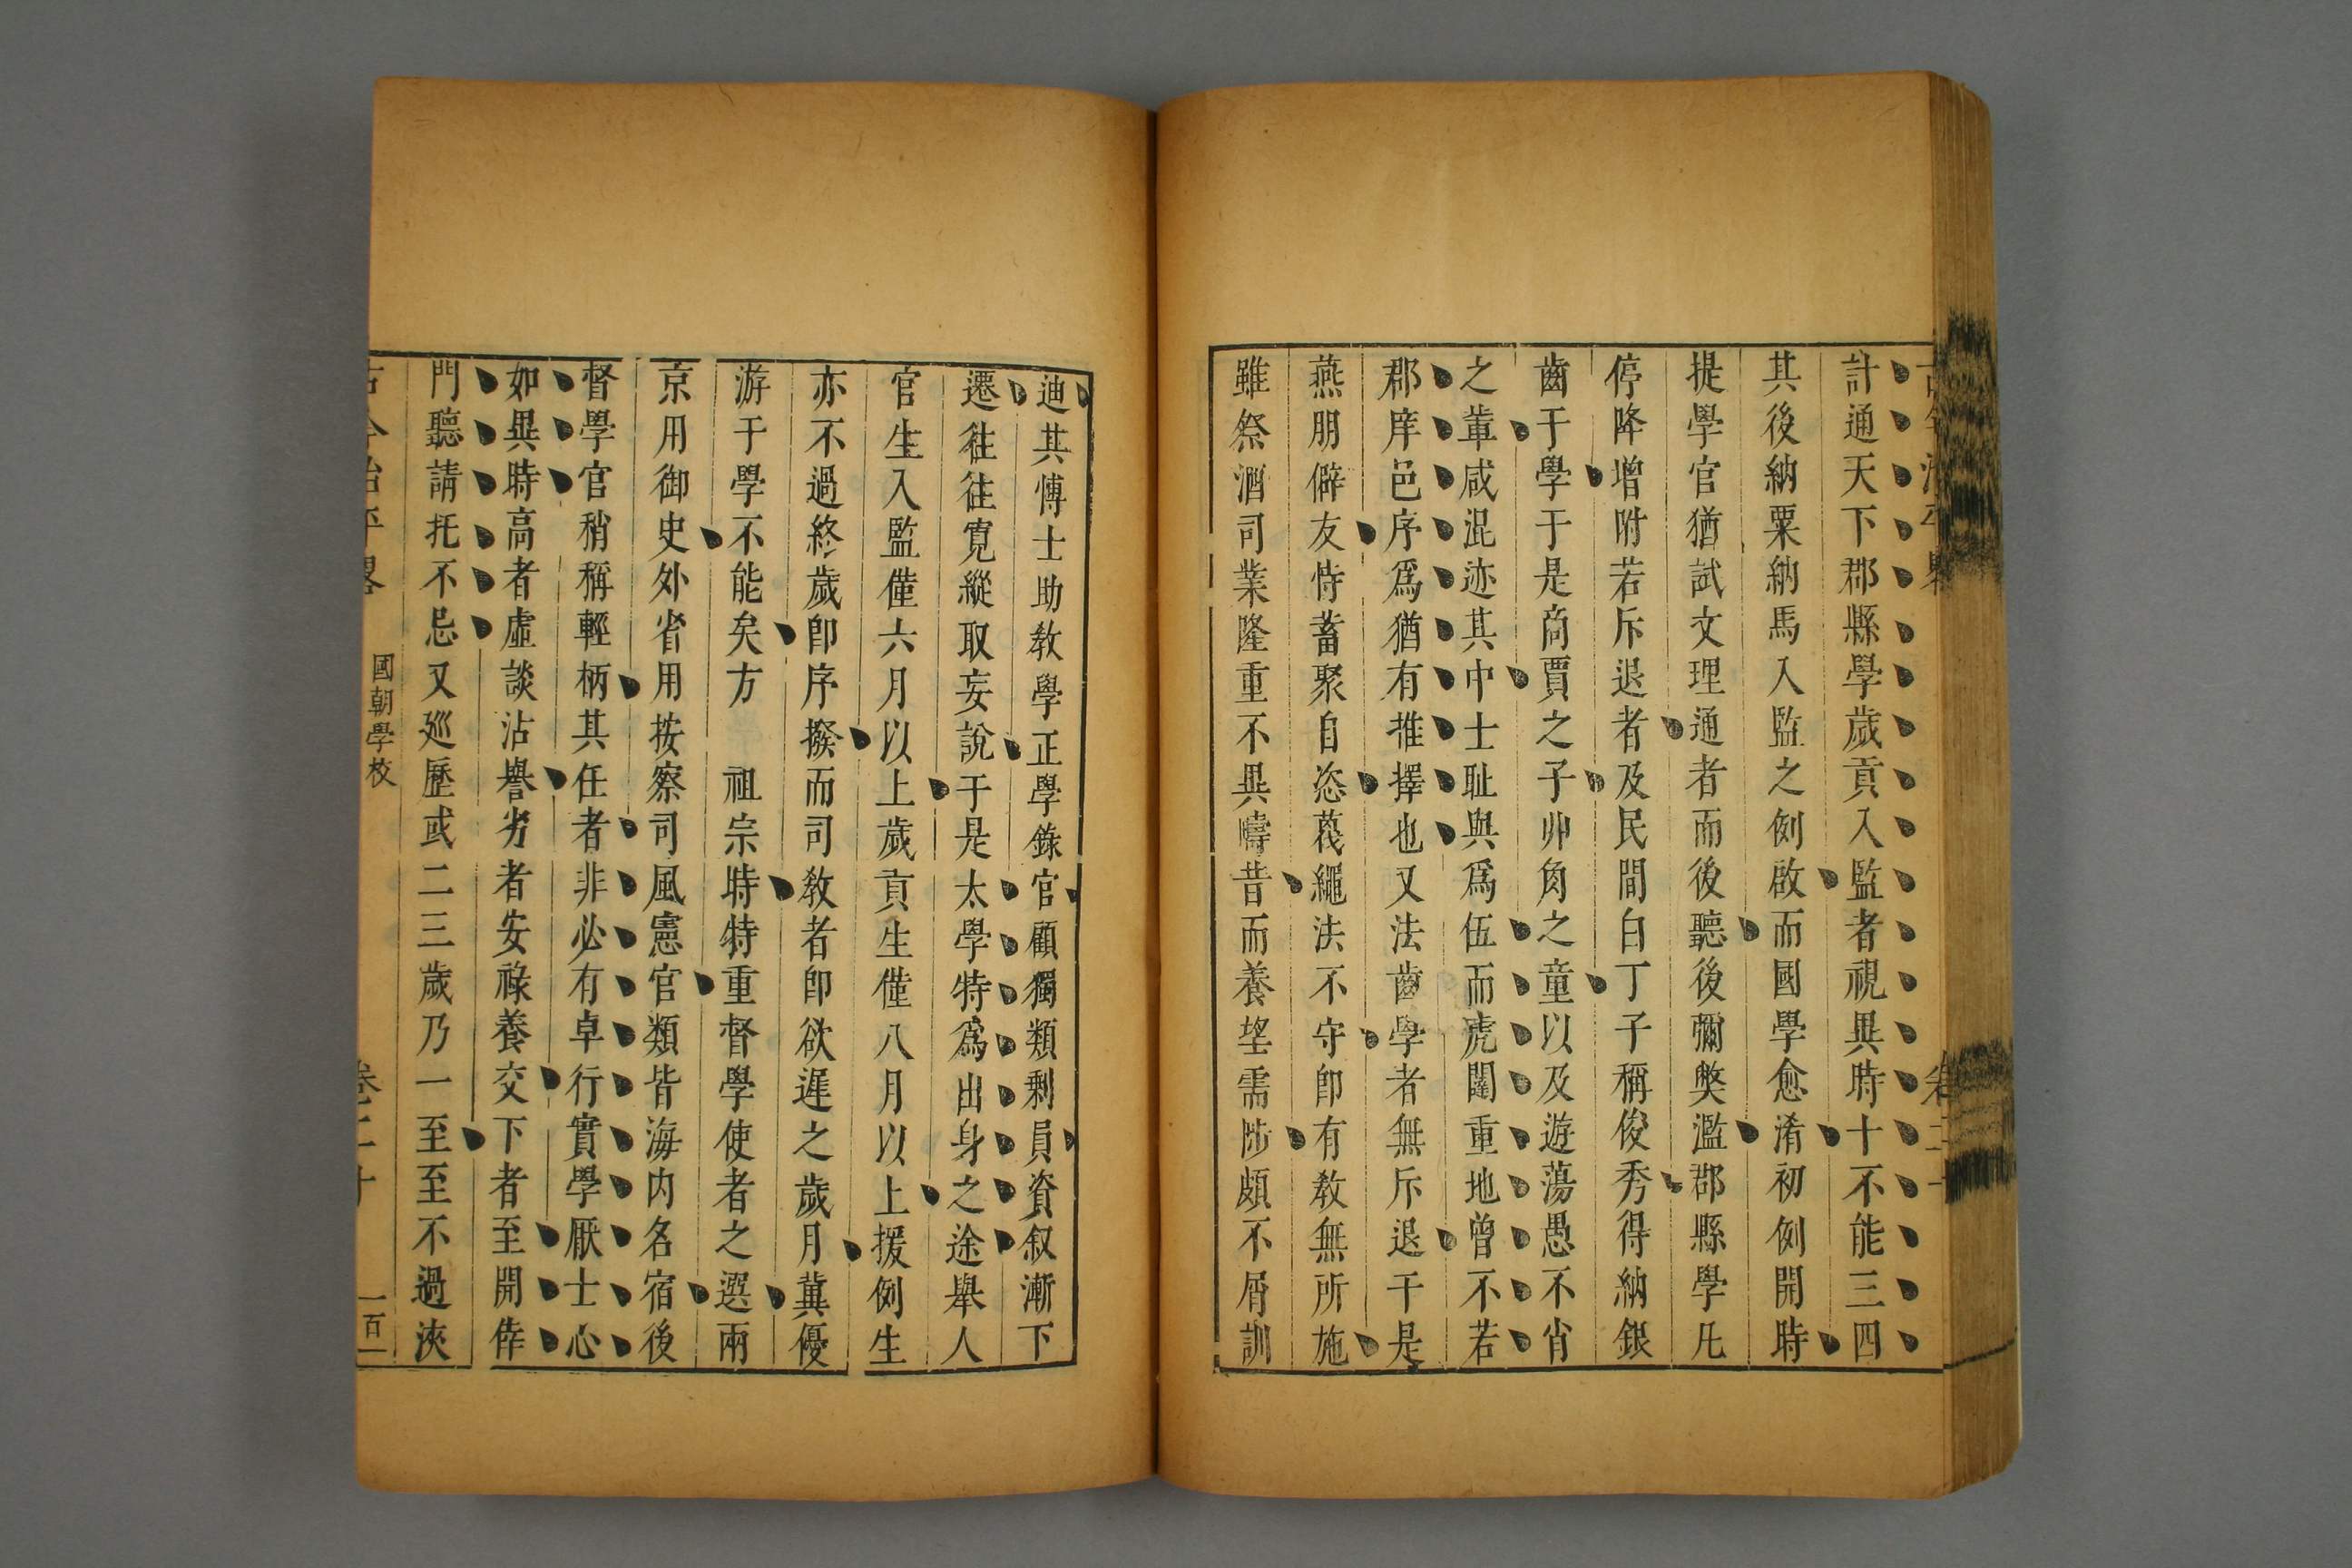 計通天下郡縣學歲貢入監者視異時十不能三四
其後納粟納馬入監之例啟而國學愈淆初例開時
提學官猶試文理通者而後聽後彌獘濫郡縣學凡
停降增附若斥退者及民間白丁子稱俊秀得納銀
齒于學于是商賈之子丱角之童以及遊蕩愚不肖
之軰咸混迹其中士耻與爲伍而虎闈重地曾不若
郡庠邑序爲猶有推擇也又法齒學者無斥退于是
燕朋僻友恃蓄聚自恣蔑繩法不守卽有教無所施
雖祭酒司業隆重不異疇昔而養望需陟頗不屑訓
迪其博士助教學正學錄官顧獨類剩員資叙漸下
遷往往寬縱取妄說于是太學特爲出身之途舉人
官生入監僅六月以上歲貢生僅八月以上援例生
亦不過終歲卽序撥而司教者卽欲遲之歲月冀優
游于學不能矣方 祖宗時特重督學使者之選兩
京用御史外省用按察司風憲官類皆海内名宿後
督學官稍稱輕柄其任者非必有卓行實學厭士心
如異時高者虛談沽譽劣者安祿養交下者至開倖
門聽請托不忌又廵歷或二三歲乃一至至不過浹
古今治平畧
國朝學校
卷二十
一百一